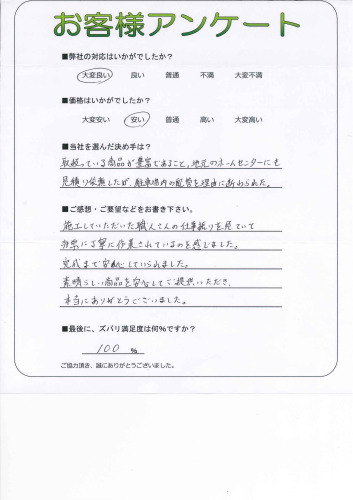 お客様アンケート
■弊社の対応はいかがでしたか？
大変良い 良い 普通 不満 大変不満
■価格はいかがでしたか？
大変安い 安い 普通 高い 大変高い
■当社を選んだ決め手は？
取扱っている商品が豊富であること、地元のホームセンターにも
見積り依頼したが、駐車場内の配管を理由に断わられた。
■ご感想・ご要望などをお書き下さい。
施工していただいた職人さんの仕事振りを見ていて
非常に丁寧に作業されているのを感じました。
完成まで安心していられました。
素晴らしい商品を安心してご提供いただき、
本当にありがとうございました。
■最後に、ズバリ満足度は何%ですか？
100 %
ご協力頂き、誠にありがとうございました。